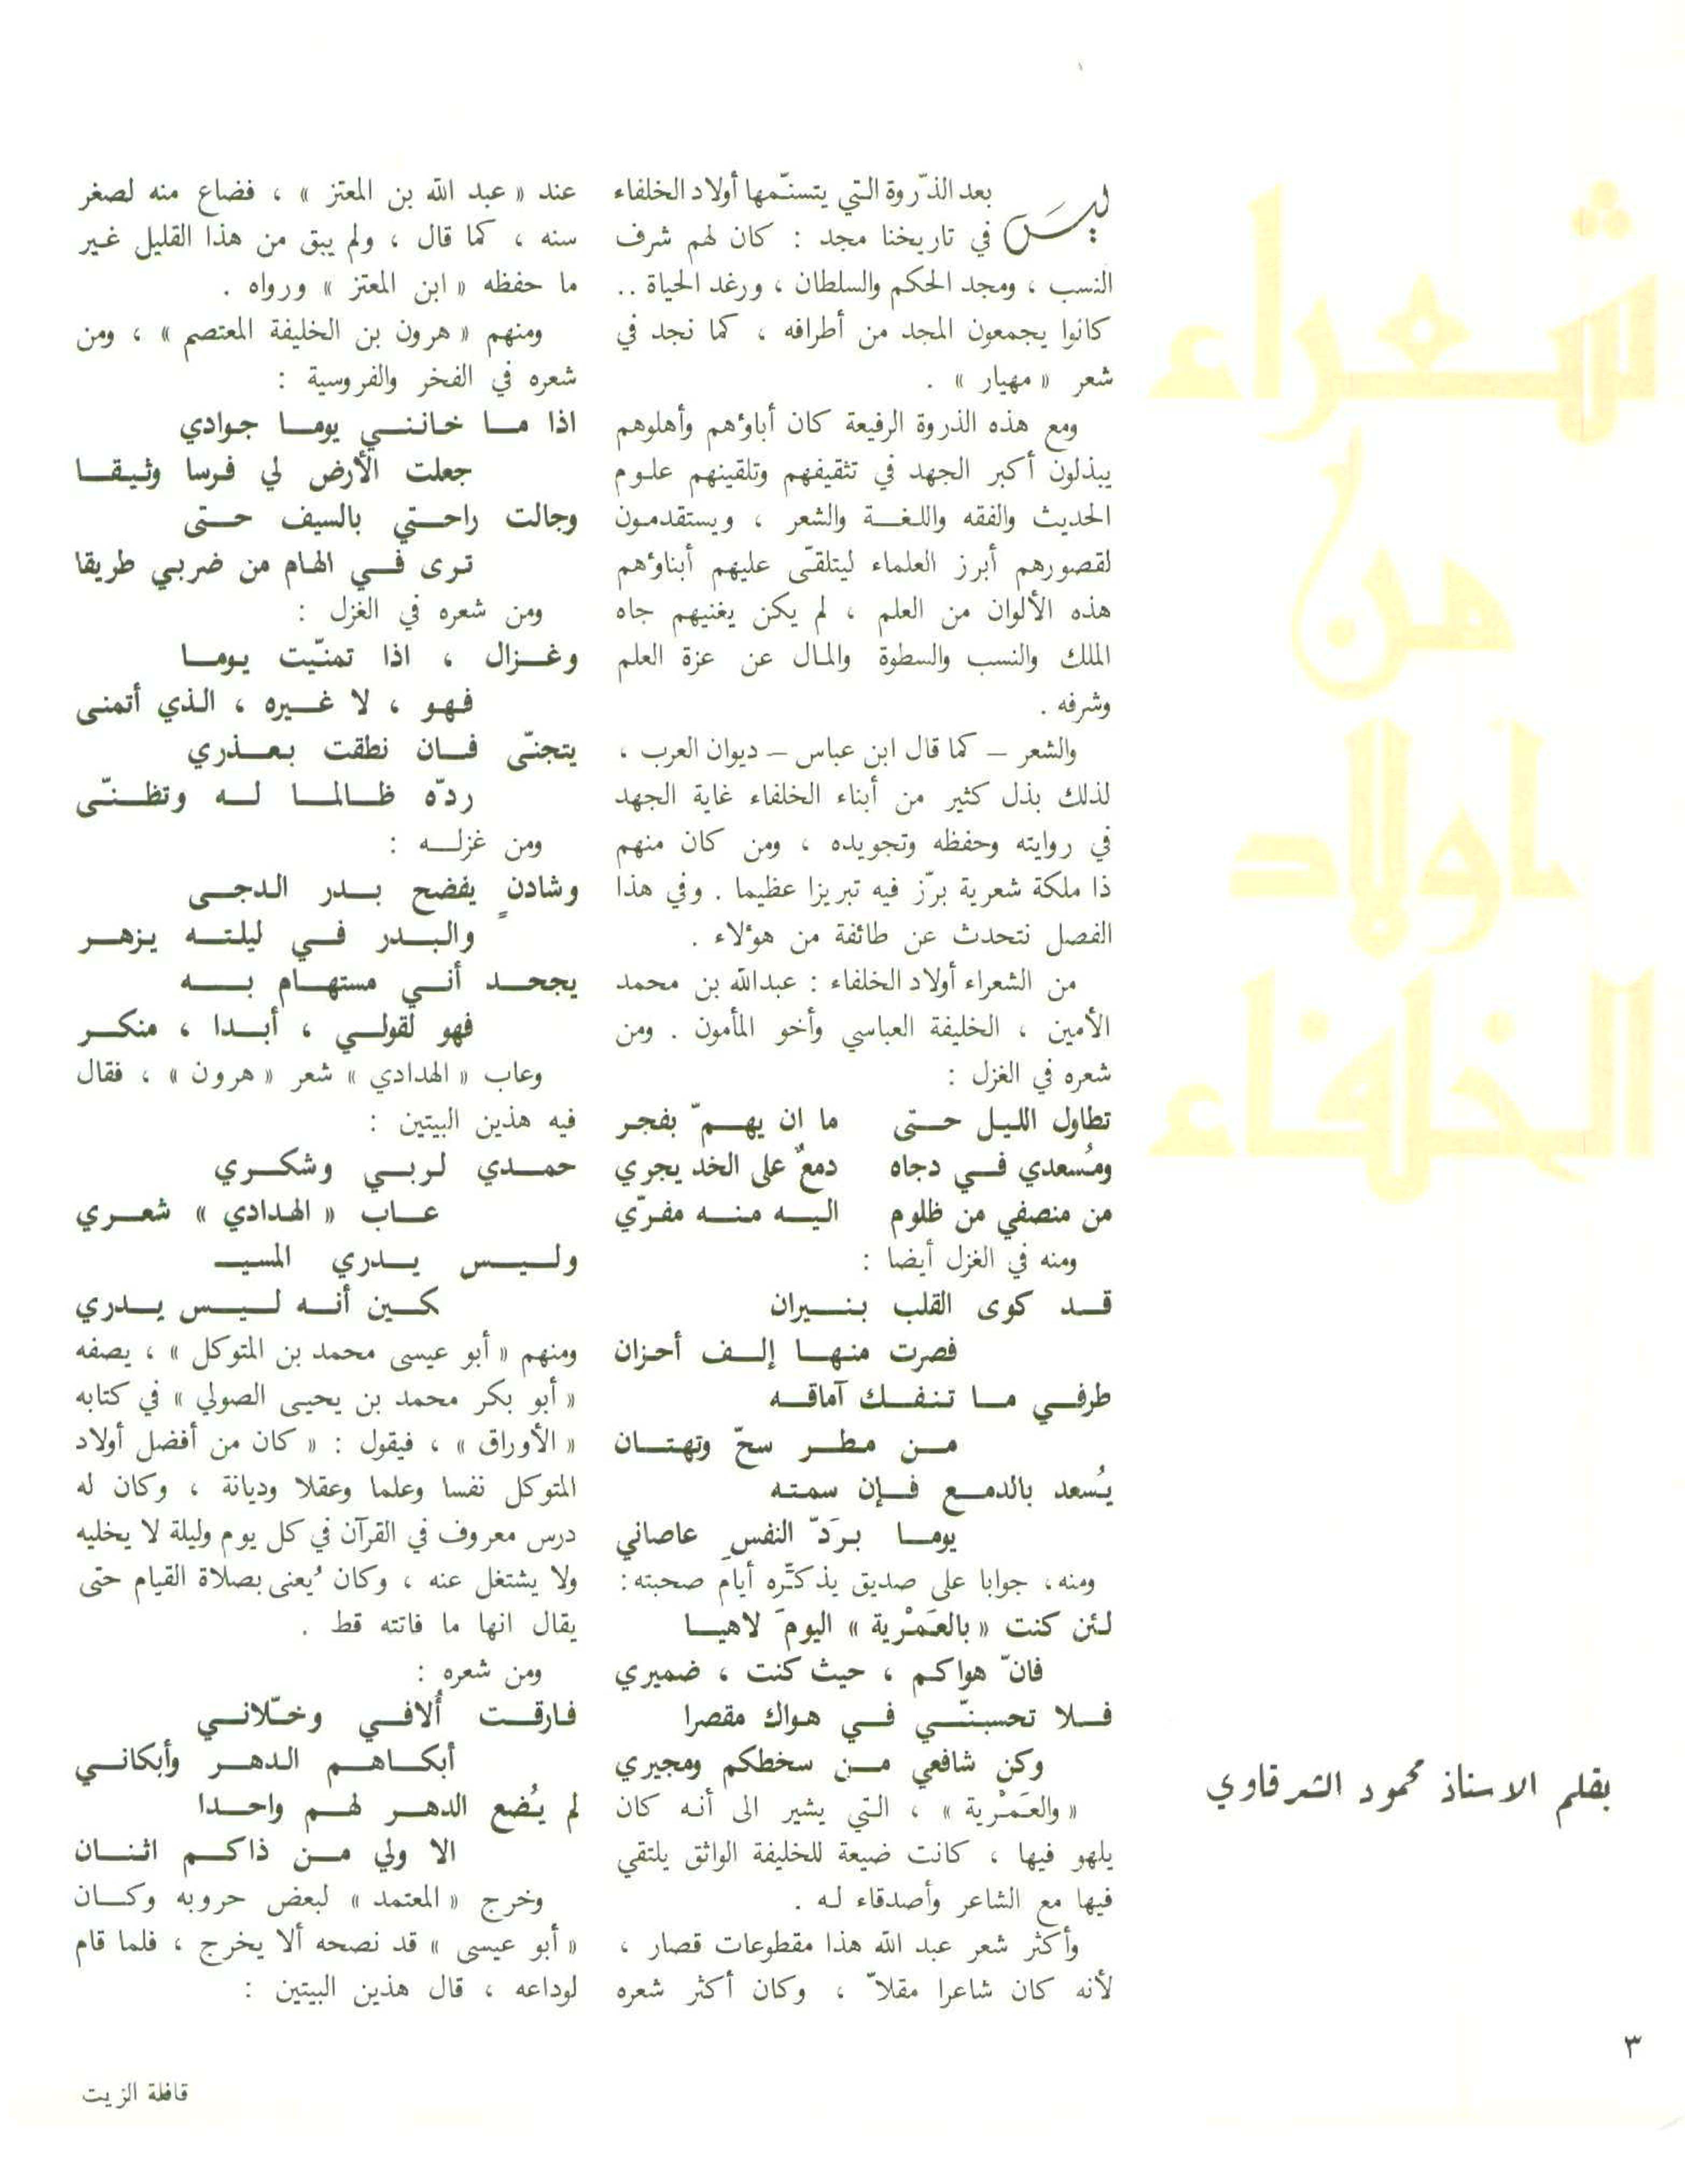 شعراء
من
أولاد
الخلفاء
بقلم الاستاذ محمود الشرقاوي
ليسَ بعد الذّروة التي يتسنّمها أولاد الخلفاء
في تاريخنا مجد : كان لهم شرف
النسب ، ومجد الحكم والسلطان ، ورغد الحياة ..
كانوا يجمعون المجد من أطرافه ، كما نجد في
شعر « مهيار » .
ومع هذه الذروة الرفيعة كان أباؤهم وأهلوهم
يبذلون أكبر الجهد في تثقيفهم وتلقينهم علوم
الحديث والفقه واللغة والشعر ، ويستقدمون
لقصورهم أبرز العلماء ليتلقّى عليهم أبناؤهم
هذه الألوان من العلم ، لم يكن يغنيهم جاه
الملك والنسب والسطوة والمال عن عزة العلم
وشرفه .
والشعر – كما قال ابن عباس – ديوان العرب ،
لذلك بذل كثير من أبناء الخلفاء غاية الجهد
في روايته وحفظه وتجويده ، ومن كان منهم
ذا ملكة شعرية برّز فيه تبريزا عظيما . وفي هذا
الفصل نتحدث عن طائفة من هؤلاء .
من الشعراء أولاد الخلفاء : عبدالله بن محمد
الأمين ، الخليفة العباسي وأخو المأمون . ومن
شعره في الغزل :
تطاول الليل حتى ما ان يهمّ بفجر
ومُسعدي في دجاه دمعٌ على الخد يجري
من منصفي من ظلوم اليه منه مفرّي
ومنه في الغزل أيضا :
قد كوى القلب بنيران
فصرت منها إلف أحزان
طرفي ما تنفك آماقه
من مطر سحّ وتهتان
يُسعد بالدمع فإن سمته
يوما بردّ النفس عاصاني
ومنه، جوابا على صديق يذكّره أيامَ صحبته :
لئن كنت « بالعَمْرية » اليومَ لاهيا
فانّ هواكم ، حيث كنت ، ضميري
فلا تحسبنّي في هواك مقصرا
وكن شافعي من سخطكم ومجيري
« والعَمْرية » ، التي يشير الى أنه كان
يلهو فيها ، كانت ضيعة للخليفة الواثق يلتقي
فيها مع الشاعر وأصدقاء له .
وأكثر شعر عبد الله هذا مقطوعات قصار ،
لأنه كان شاعرا مقلاّ ، وكان أكثر شعره
عند « عبد الله بن المعتز » ، فضاع منه لصغر
سنه ، كما قال ، ولم يبق من هذا القليل غير
ما حفظه « ابن المعتز » ورواه .
ومنهم « هرون بن الخليفة المعتصم » ، ومن
شعره في الفخر والفروسية :
اذا ما خانني يوما جوادي
جعلت الأرض لي فرسا وثيقا
وجالت راحتي بالسيف حتى
ترى في الهام من ضربي طريقا
ومن شعره في الغزل :
وغزال ، اذا تمنّيت يوما
فهو ، لا غيره ، الذي أتمنى
يتجنّى فان نطقت بعذري
ردّه ظالما له وتظنّى
ومن غزله :
وشادنٍ يفضح بدر الدجى
والبدر في ليلته يزهر
يجحد أني مستهام به
فهو لقولي ، أبدا ، منكر
وعاب « الهدادي » شعر « هرون » ، فقال
فيه هذين البيتين :
حمدي لربي وشكري
عاب « الهدادي » شعري
وليس يدري المسيـ
كين أنه ليس يدري
ومنهم « أبو عيسى محمد بن المتوكل » ، يصفه
« أبو بكر محمد بن يحيى الصولي » في كتابه
« الأوراق » ، فيقول : « كان من أفضل أولاد
المتوكل نفسا وعلما وعقلا وديانة ، وكان له
درس معروف في القرآن في كل يوم وليلة لا يخليه
ولا يشتغل عنه ، وكان يُعنى بصلاة القيام حتى
يقال انها ما فاتته قط .
ومن شعره :
فارقت أُلافي وخلّاني
أبكاهم الدهر وأبكاني
لم يُضع الدهر لهم واحدا
الا ولي من ذاكم اثنان
وخرج « المعتمد » لبعض حروبه وكان
« أبو عيسى » قد نصحه ألا يخرج ، فلما قام
لوداعه ، قال هذين البيتين :
٣
قافلة الزيت